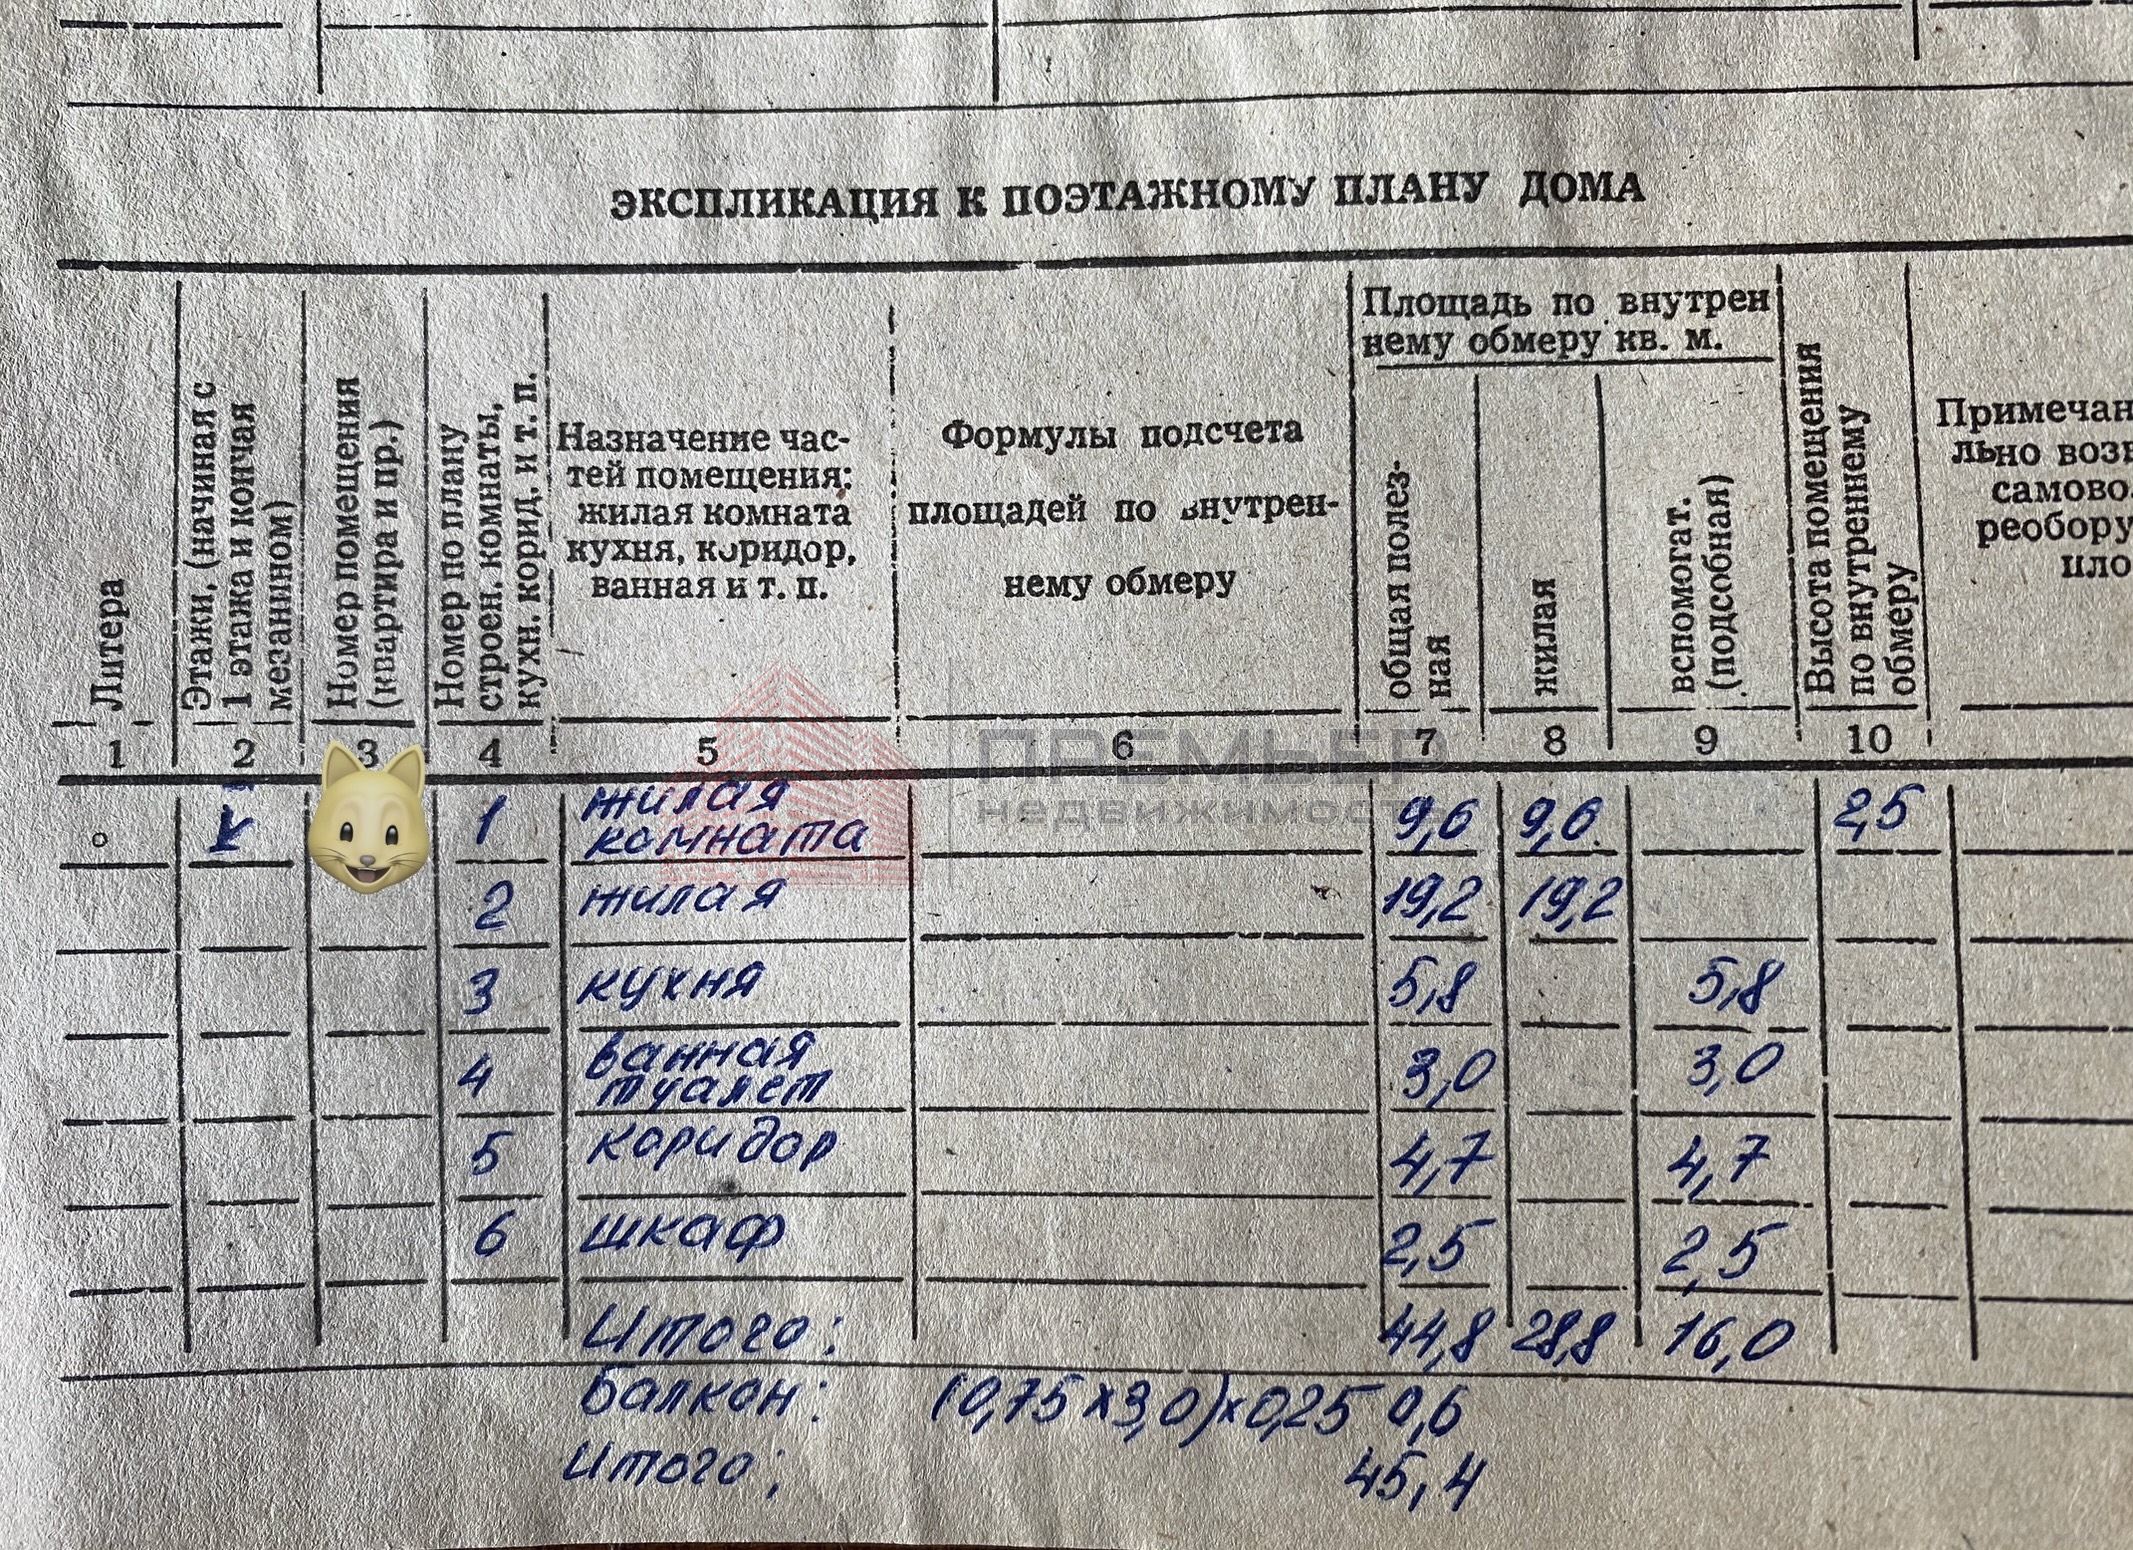 ЭКСПЛИКАЦИЯ К ПОЭТАЖНОМУ ПЛАНУ ДОМА
Литера
Этажи, (начиная с
1 этажа и кончая
мезанином)
Номер помещения
(квартира и пр.)
Номер по плану
строен. комнаты,
кухн. корид. и т. п.
Назначение час-
тей помещения:
жилая комната
кухня, коридор,
ванная и т. п.
Формулы подсчета
площадей по внутрен-
нему обмеру
Площадь по внутрен
нему обмеру кв. м.
общая полез-
ная
жилая
вспомогат.
(подсобная)
Высота помещения
по внутреннему
обмеру
Примечан
льно
самово
реобору
пло
1 2 3 4 5 6 7 8 9 10
ПРЕМЬЕР
недвижимость
1 жилая комната 9,6 9,6 2,5
2 жилая 19,2 19,2
3 кухня 5,8 5,8
4 ванная туалет 3,0 3,0
5 коридор 4,7 4,7
6 шкаф 2,5 2,5
Итого: 44,8 28,8 16,0
Балкон: (0,75х3,0)х0,25 0,6
Итого: 45,4